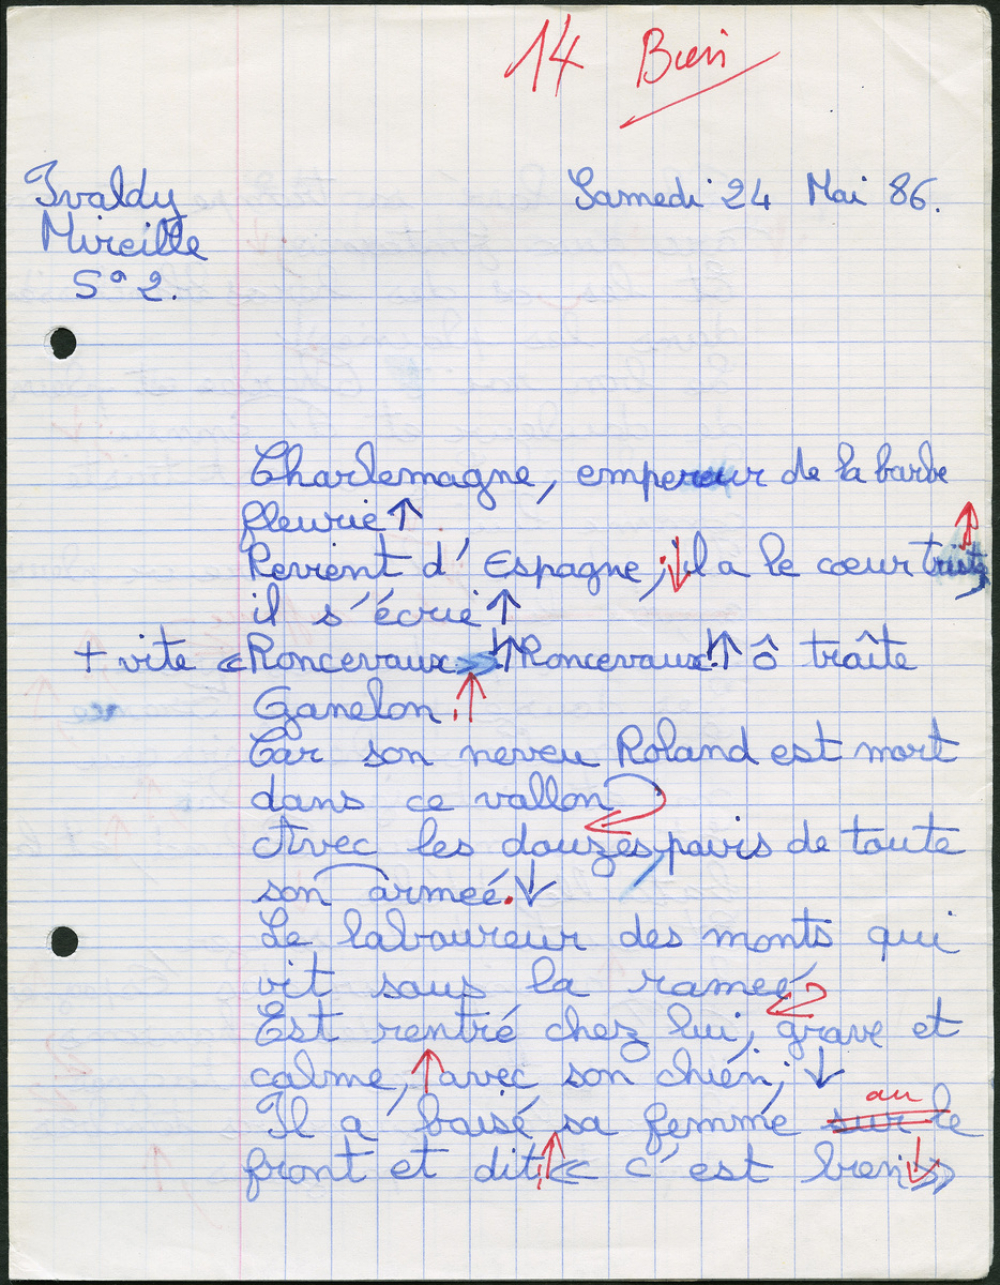 14 Bien
Ivaldy
Mireille
Sa 2.
Samedi 24 Mai 86.
Charlemagne, empereur de la barbe
fleurie ↑
Revient d' Espagne, ; ↓ il a le cœur triste, ↑
il s'écrie ↑
+ vite « Roncevaux » ! ↑ Roncevaux ! ↑ ô traîte
Ganelon. ! ↑
Car son neveu Roland est mort
dans ce vallon
Avec les douzes pairs de toute
son armeé. ↓
Le laboureur des monts qui
vit sous la rameé
Est rentré chez lui, grave et
calme, ↑ avec son chién; ↓
Il a baisé sa femme sur au le
front et dit, ↑ « c'est bien ↓ »